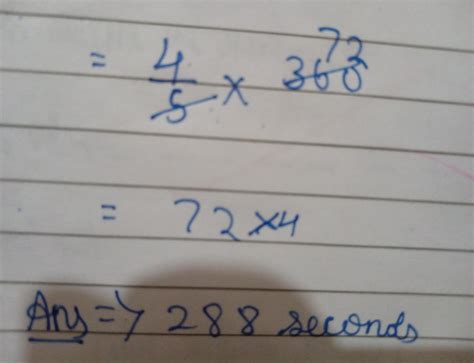 72
= 4/5 × 360
= 72×4
Ans => 288 seconds